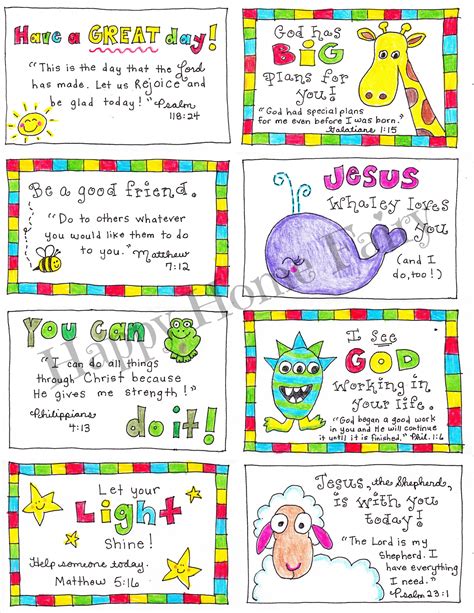 Have a GREAT day!
"This is the day that the Lord
has made. Let us Rejoice and
be glad today!" Psalm
118:24
God has
BIG
Plans for
you!
"God had special plans
for me even before I was born."
Galatians 1:15
Be a good friend.
"Do to others whatever
you would like them to do
to you." Matthew
7:12
JESUS
Whaley loves
you
(and I
do, too!)
You Can
"I can do all things
through Christ because
He gives me strength!"
Philippians
4:13
do it!
I See
GOD
Working in
your life.
"God began a good work
in you and He will continue
it until it is finished." Phil. 1:6
Let your
Light
Shine!
Help someone today.
Matthew 5:16
Jesus, the Shepherd,
is with you
today!
"The Lord is my
shepherd. I have
everything
I need."
Psalm 23:1
Happy Home Fairy